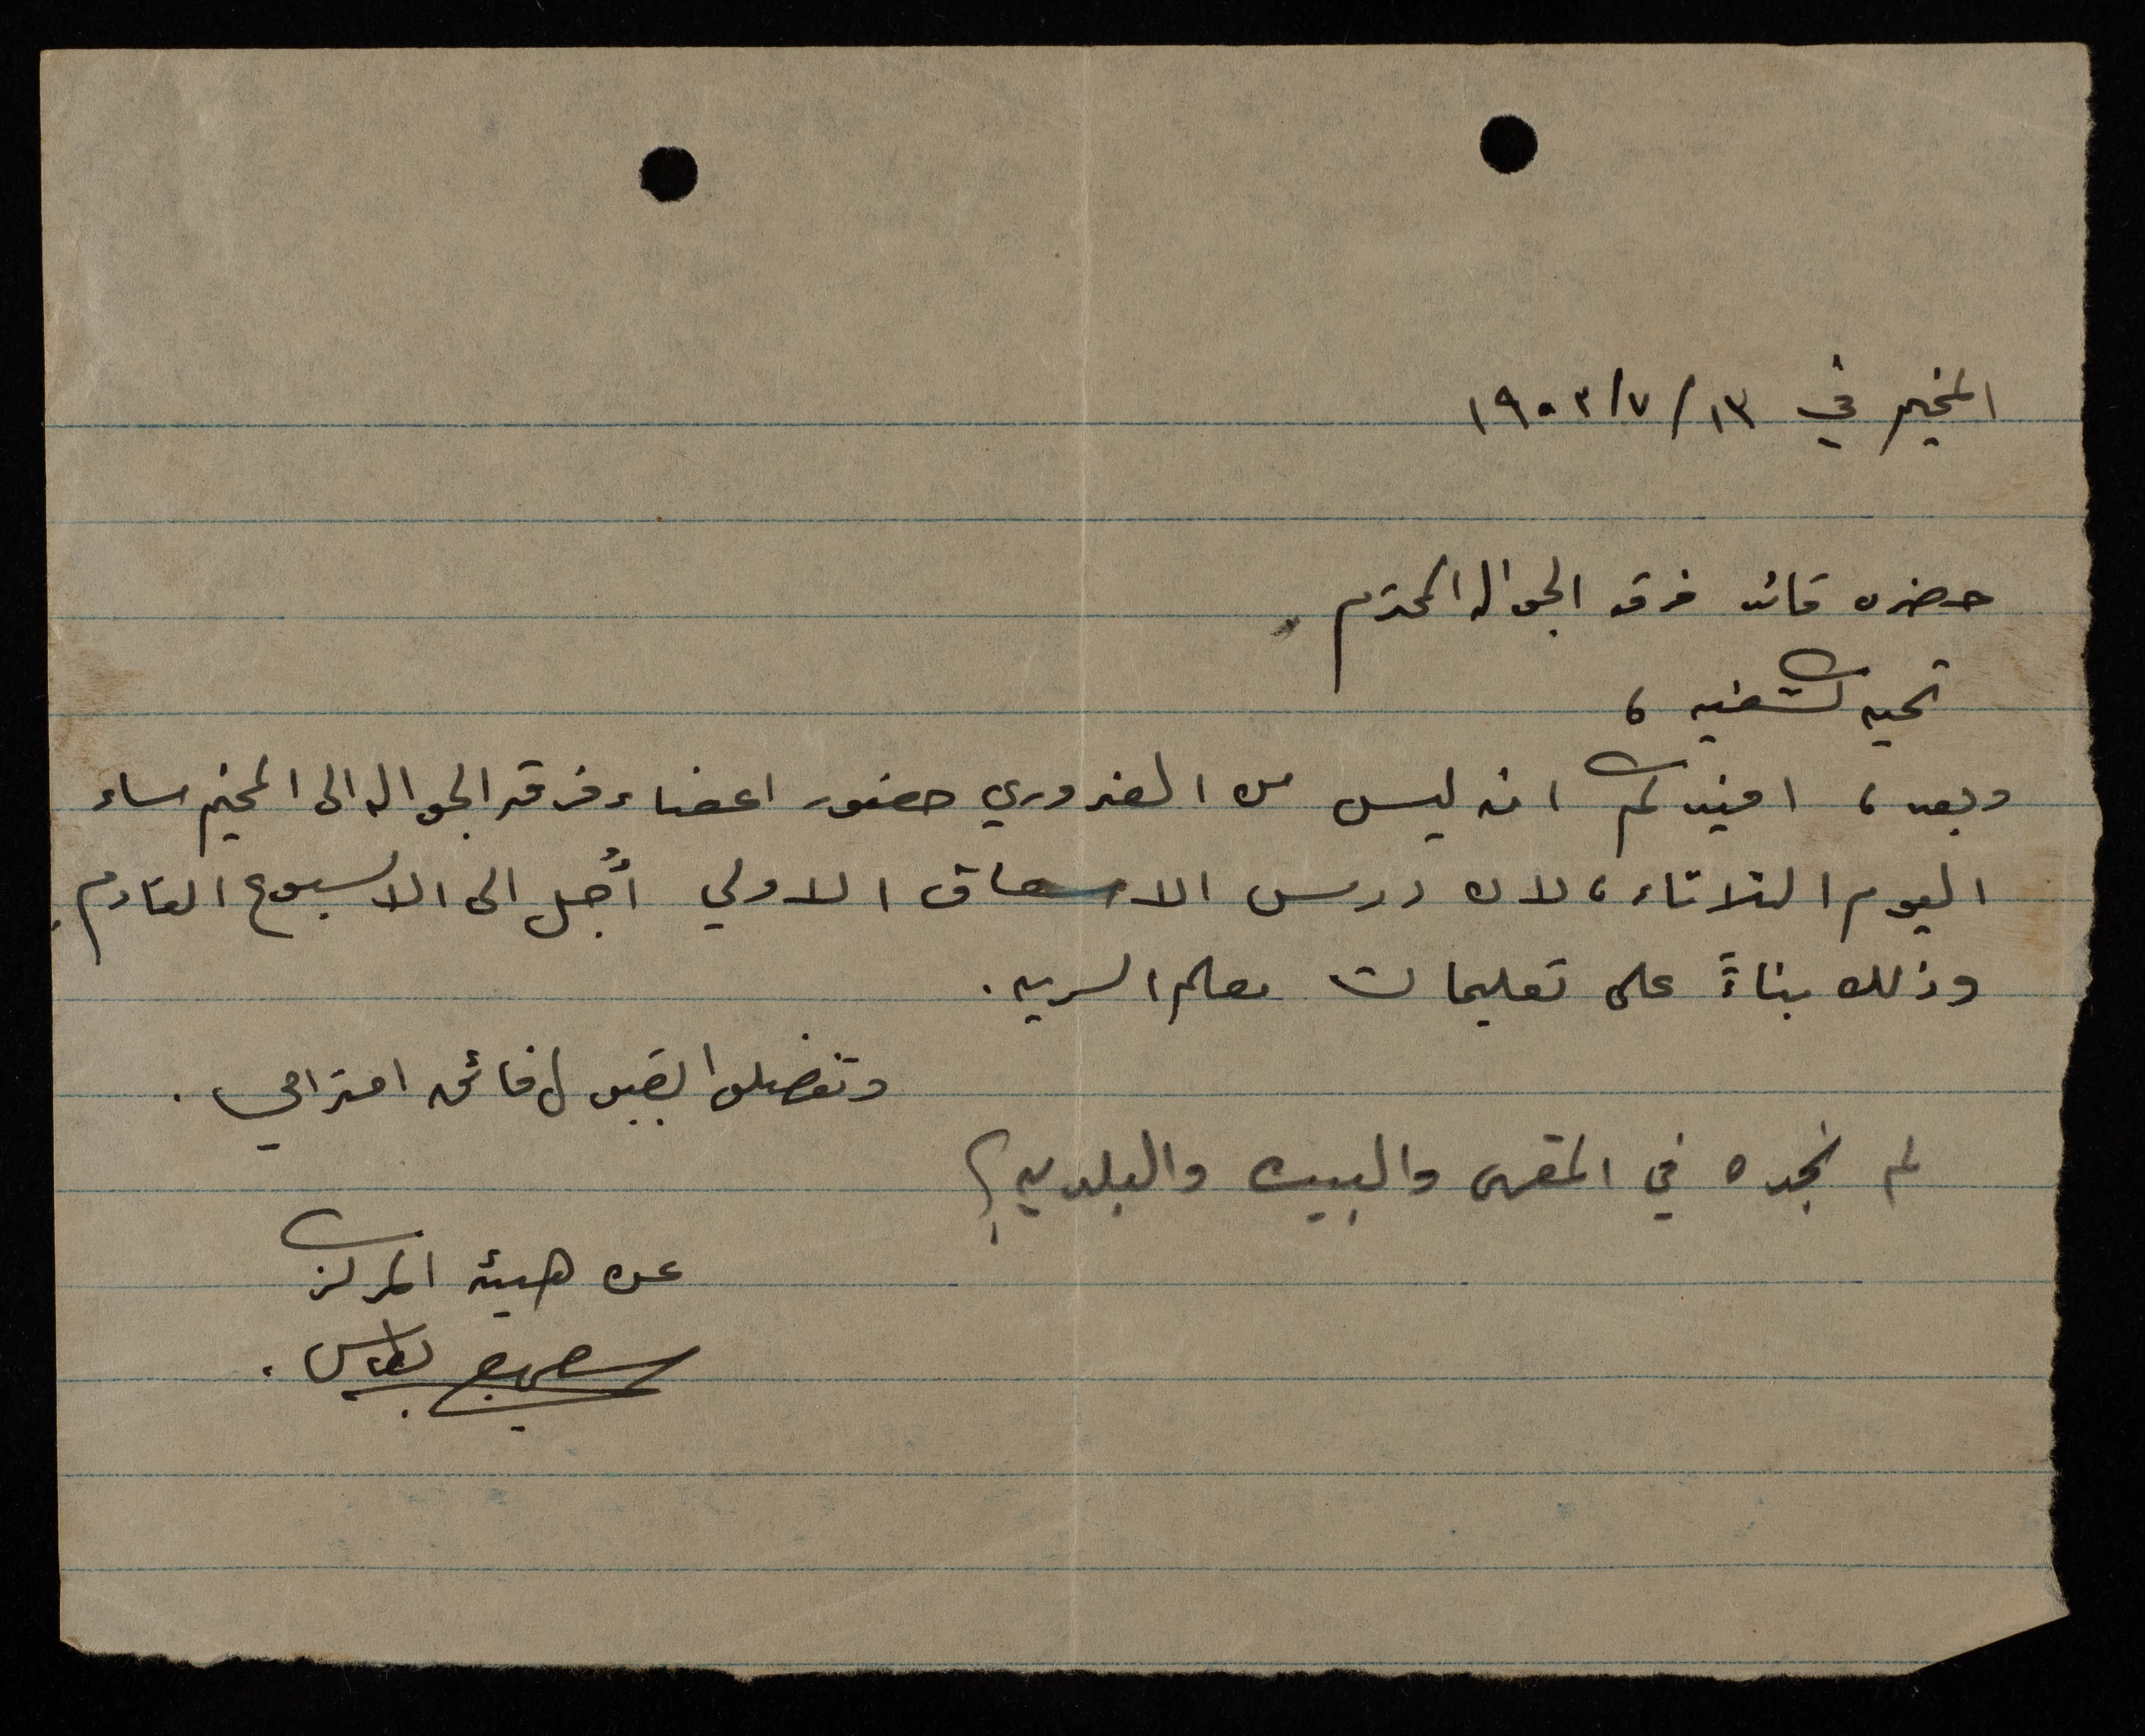 المخيم في ١٣/٧/١٩٥٣
حضرة قائد فرقة الجواله المحترم
تحيه كشفيه ،
وبعد ، افيدكم انه ليس من الضروري حضور اعضاء فرقة الجواله الى المخيم مساء
اليوم الثلاثاء ، لان درس الاسعاف الاولي أُجل الى الاسبوع القادم.
وذلك بناءً على تعليمات معلم السريه .
وتفضلوا بقبول فائق احترامي .
لم نجده في المقهى والبيت والبلديه؟
عن هيئة المركز